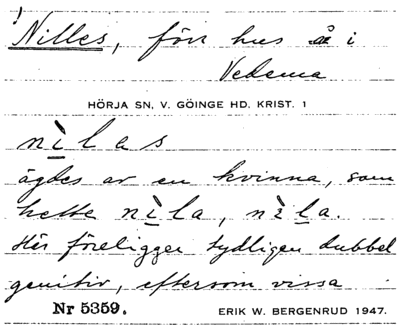 Nilles, förr hus å i
Vedema
HÖRJA SN, V. GÖINGE HD. KRIST. 1
nìlas
ägdes av en kvinna, som
hette nìla, nìla.
Här föreligger tydligen dubbel
genitiv, eftersom vissa
Nr 5359. ERIK W. BERGENRUD 1947.